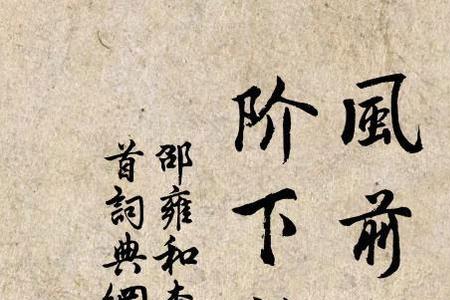 風前
阶下
邵雍和
首詞典